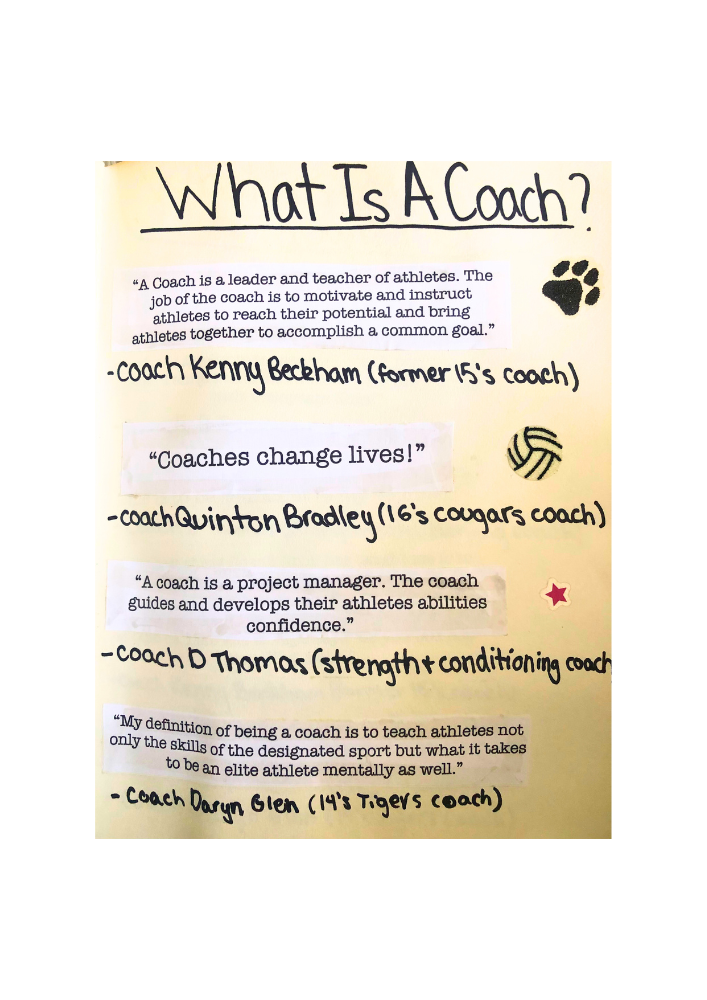 What Is A Coach?
“A Coach is a leader and teacher of athletes. The
job of the coach is to motivate and instruct
athletes to reach their potential and bring
athletes together to accomplish a common goal.”
-coach Kenny Beckham (former 15's coach)
“Coaches change lives!”
-coach Quinton Bradley (16's cougars coach)
“A coach is a project manager. The coach
guides and develops their athletes abilities
confidence.”
-coach D Thomas (strength + conditioning coach
“My definition of being a coach is to teach athletes not
only the skills of the designated sport but what it takes
to be an elite athlete mentally as well.”
- Coach Daryn Glen (14's Tigers coach)